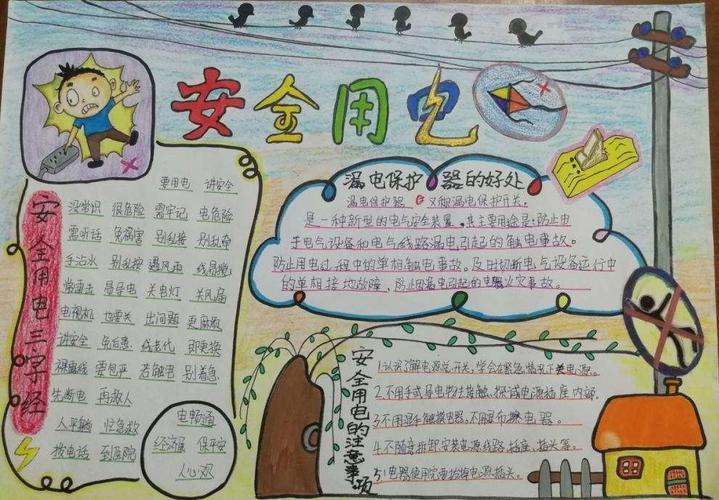 安全用电
安全用电三字经
要用电 讲安全
没常识 很危险 需牢记 电危险
需听话 免祸害 别乱接 别乱牵
手沾水 别乱接 遇风雨 线易摆
常雷击 易导电 关电灯 关风扇
电视机 也要关 出问题 更麻烦
讲安全 免后患 线老代 即更换
裸露线 要包平 若触电 别着急
先断电 再救人
人平躺 归急救
拨电话 到医院
电畅通
经济强 保平安
人心欢
漏电保护器的好处
漏电保护器 又叫漏电保护开关。
是一种新型的电气安全装置,其主要用途是:防止由
于电气设备和电气线路漏电引起的触电事故。
防止用电过程中的单相触电事故。及时切断电气设备运行中
的单相接地故障,防止因漏电引起的电气火灾事故。
安全用电的注意事项
1.认识了解电源总开关,学会在紧急情况下关电源。
2.不用手或导电物去接触、探试电源插座内部.
3.不用湿手触摸电器,不用湿布擦电器。
4.不随意拆卸安装电源线路、插座、插头等。
5.电器使用完要拔掉电源插头。